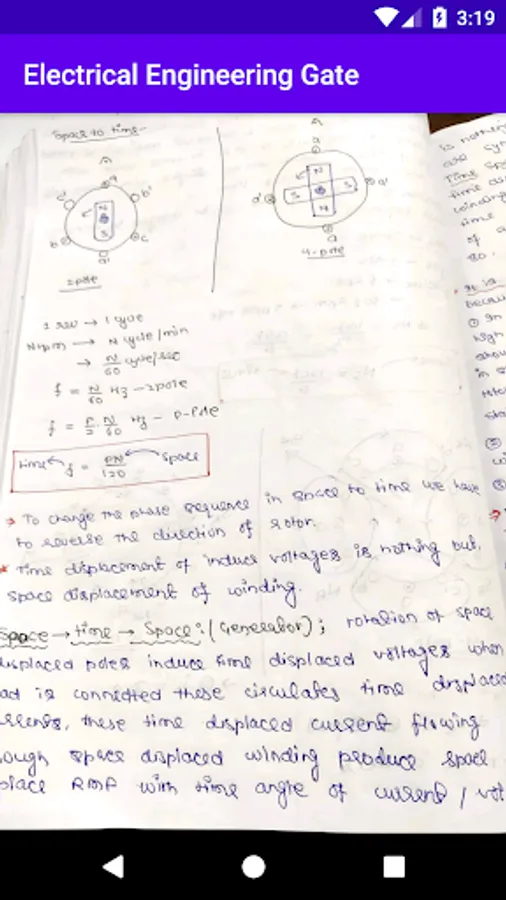 3:19
Electrical Engineering Gate
Space to time-
A
a
b'
c
a'
b
N
S
2pole
A
a
N
S
S
N
a'
a'
a
4-pole
1 rev → 1 cycle
N rpm → N cycle/min
→ N/60 cycle/sec
f = N/60 Hz - 2pole
f = P/2 . N/60 Hz - P-Pole
time f = PN/120 space
→ To change the phase sequence in space to time we have
to reverse the direction of rotor.
* Time displacement of induce voltages is nothing but,
space displacement of winding.
Space → time → Space: (Generator); rotation of space
displaced poles induce time displaced voltages when
ad is connected these circulates time displaced
rrents, these time displaced current flowing
ough space displaced winding produce space
place RMF with time angle of current / vol
is nothing
are syn
Time spa
time as
winding
time
of a
so.
It is
because
① In
high
in s
②